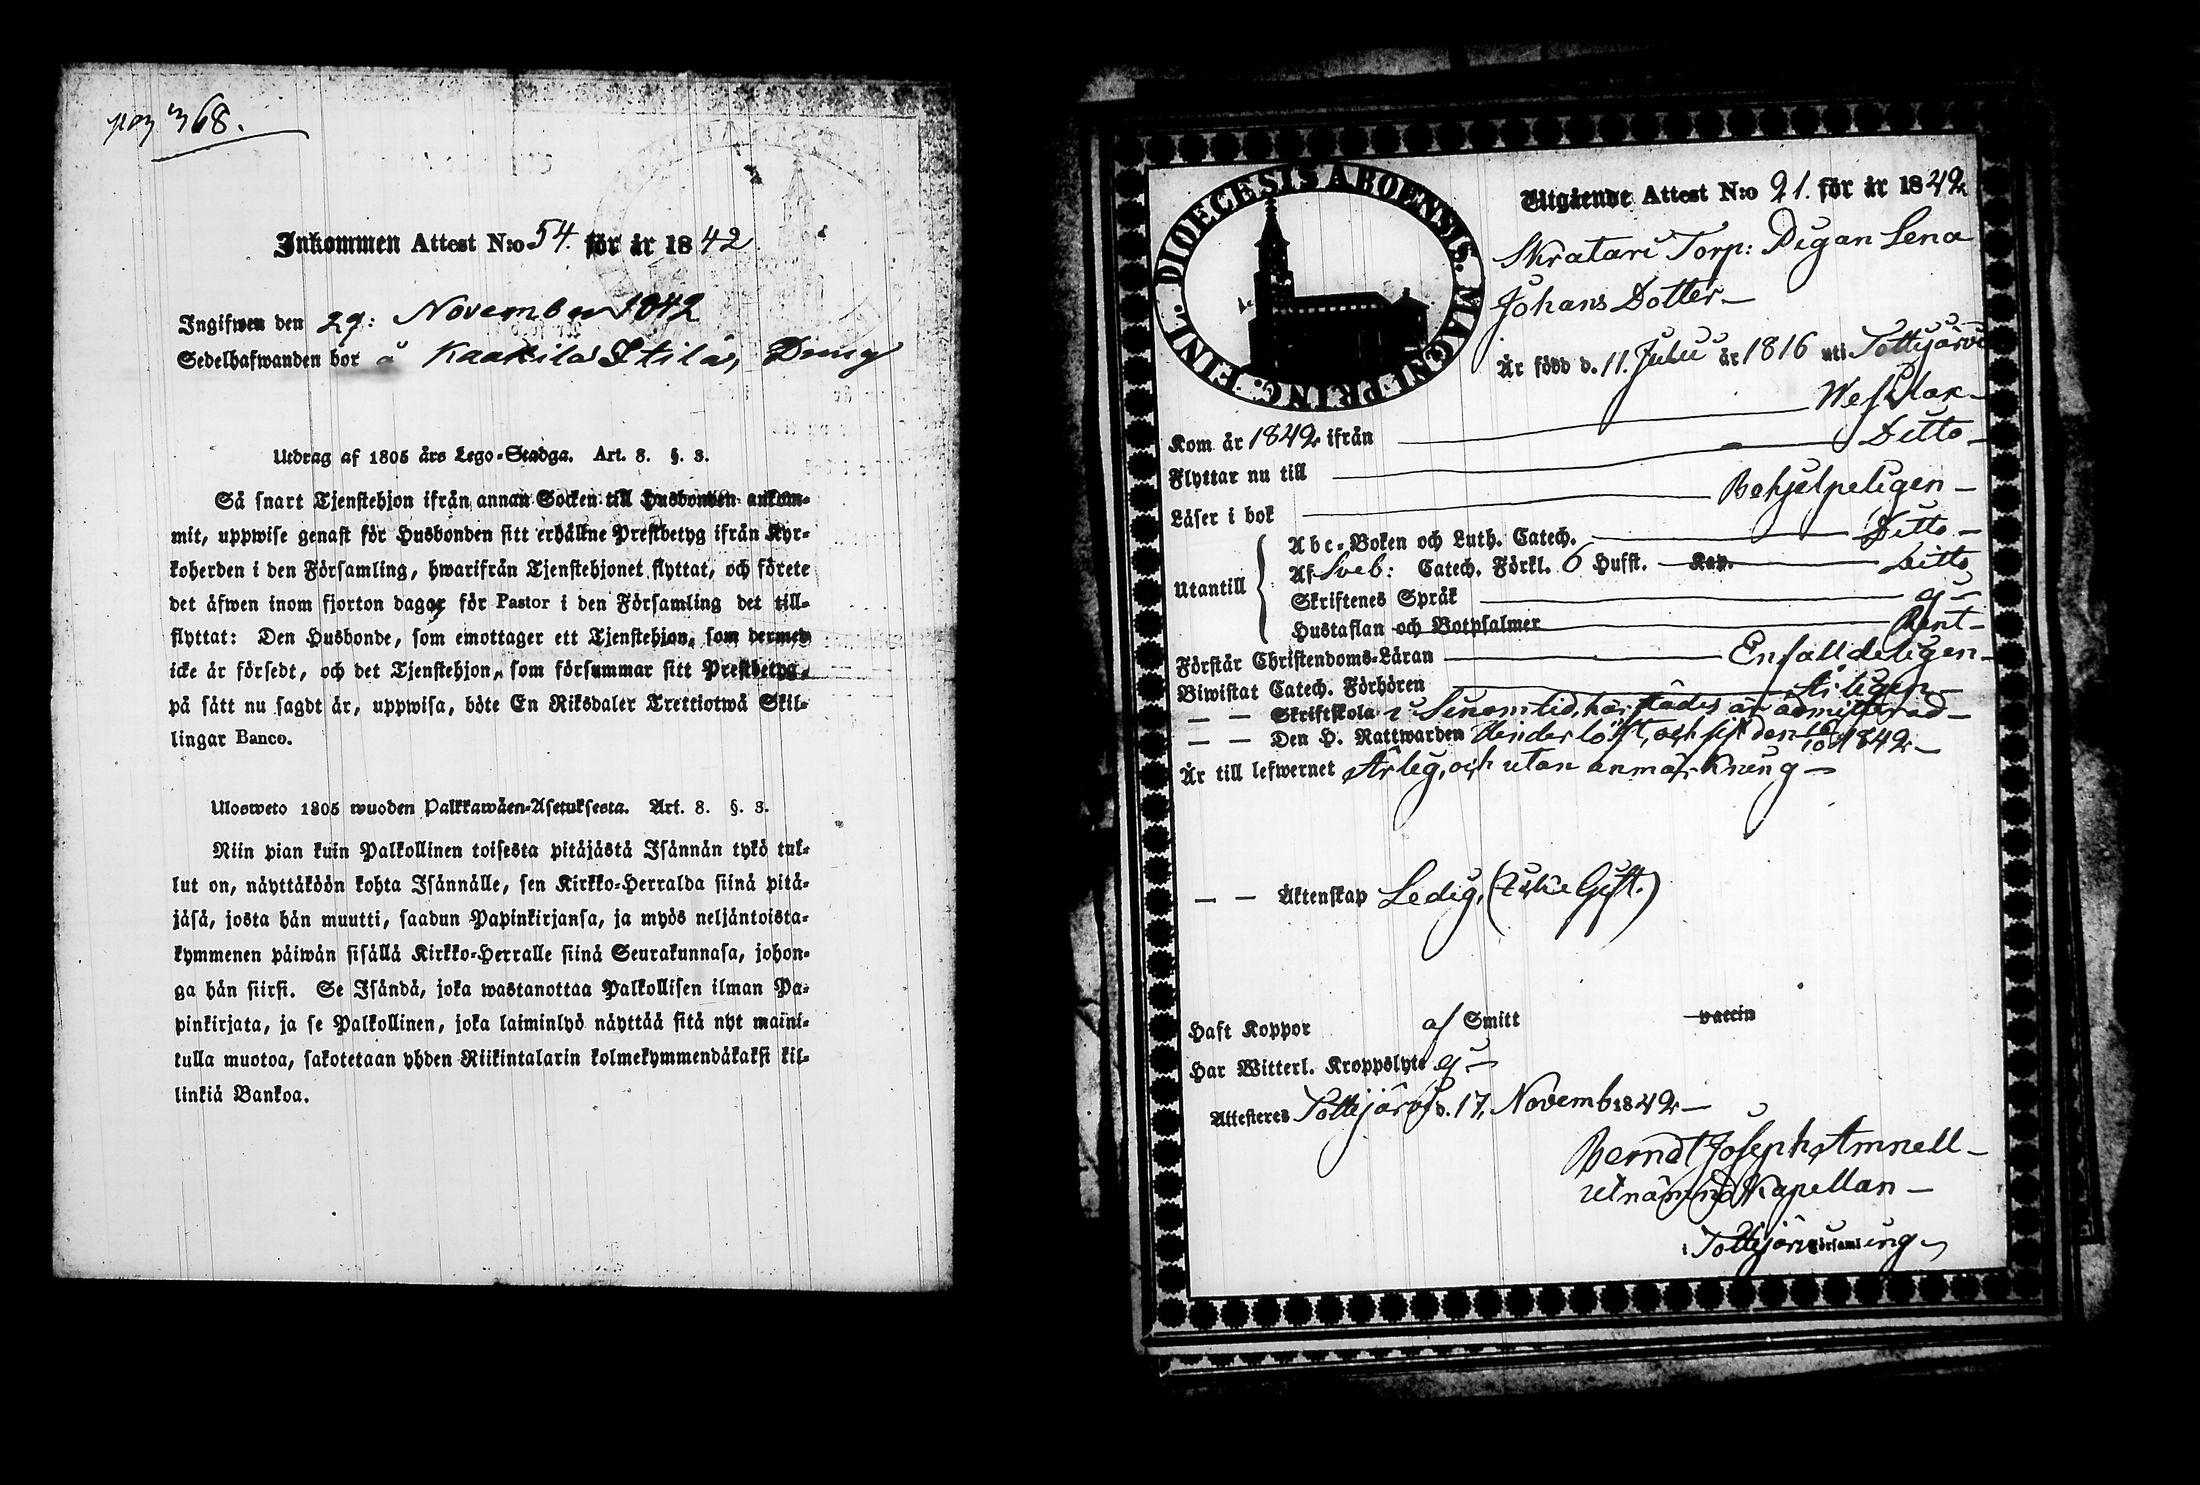 pag 368.
Inkommen Attest N:o 54. för år 1842
Ingifwen den 29: November 1842
Sedelhafwanden bor å Kaakila Itilä, Dräng
Utdrag af 1805 års Lego-Stadga. Art. 8. §. 3.
Så snart Tjenstehjon ifrån annan Socken till Husbonden ankom-
mit, uppwise genast för Husbonden sitt erhållne Prestbetyg ifrån Kyr-
koherden i den Församling, hwarifrån Tjenstehjonet flyttat, och förete
det äfwen inom fjorton dagar för Pastor i den Församling det till-
flyttat: Den Husbonde, som emottager ett Tjenstehjon, som dermed
icke är försedt, och det Tjenstehjon, som försummar sitt Prestbetyg,
på sätt nu sagdt är, uppwisa, böte En Riksdaler Trettiotwå Skil-
lingar Banco.
Ulosweto 1805 wuoden Palkkawäen-Asetuksesta. Art. 8. §. 3.
Niin pian kuin Palkollinen toisesta pitäjästä Isännän tykö tul-
lut on, näyttäköön kohta Isännälle, sen Kirkko-Herralda siinä pitä-
jäsä, josta hän muutti, saadun Papinkirjansa, ja myös neljäntoista-
kymmenen päiwän sisällä Kirkko-Herralle siinä Seurakunnasa, johon-
ga hän siirsi. Se Isändä, joka wastanottaa Palkollisen ilman Pa-
pinkirjata, ja se Palkollinen, joka laiminlyö näyttää sitä nyt maini-
tulla muotoa, sakotetaan yhden Riikintalarin kolmekymmendäkaksi kil-
linkiä Bankoa.
FINL. DIOECESIS ABOENSIS. MAGNI PRINC.
Utgående Attest N:o 21. för år 1842
Skratari Torp: Pigan Lena
Johans Dotter
Är född d. 11. Julii år 1816 uti Tottijärvi
Kom år 1842 ifrån
Wesilax
Flyttar nu till Ditto
Läser i bok Behjelpeligen
Utantill
Abc-Boken och Luth. Catech. Ditto
Af Sveb: Catech. Förkl. 6 Hufst. Kap. Ditto
Skriftenes Språk ej
Hustaflan och Botpsalmer Rent
Förstår Christendoms-Läran Enfalldeligen
Biwistat Catech. Förhören Årligen
— — Skriftskola i Sinom tid, härstädes är admitterad
— — Den H. Nattwarden Hinderlöst, och sist den 16/10 1842
Är till lefwernet Ärlig, och utan anmärkning
— — Äktenskap Ledig, (Icke Gift.)
Haft Koppor af Smitt vaccin
Har Witterl. Kroppslyte ej
Attesteres Tottijärvi d. 17. Novemb 1842
Berndt Joseph Amnell
Utnämnd Kapellan
i Tottijärvi Församling